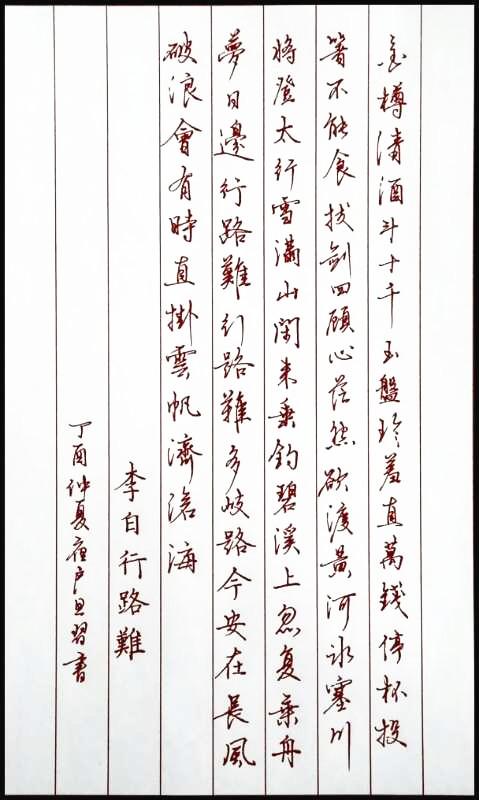 金樽清酒斗十千玉盤珍羞直萬錢停杯投
箸不能食拔劍四顧心茫然欲渡黃河冰塞川
將登太行雪滿山閑來垂釣碧溪上忽复乘舟
夢日邊行路難行路難多岐路今安在長風
破浪會有時直掛雲帆濟滄海
李白行路難
丁酉仲夏習書